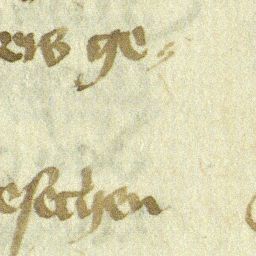 ers ge=
esechen